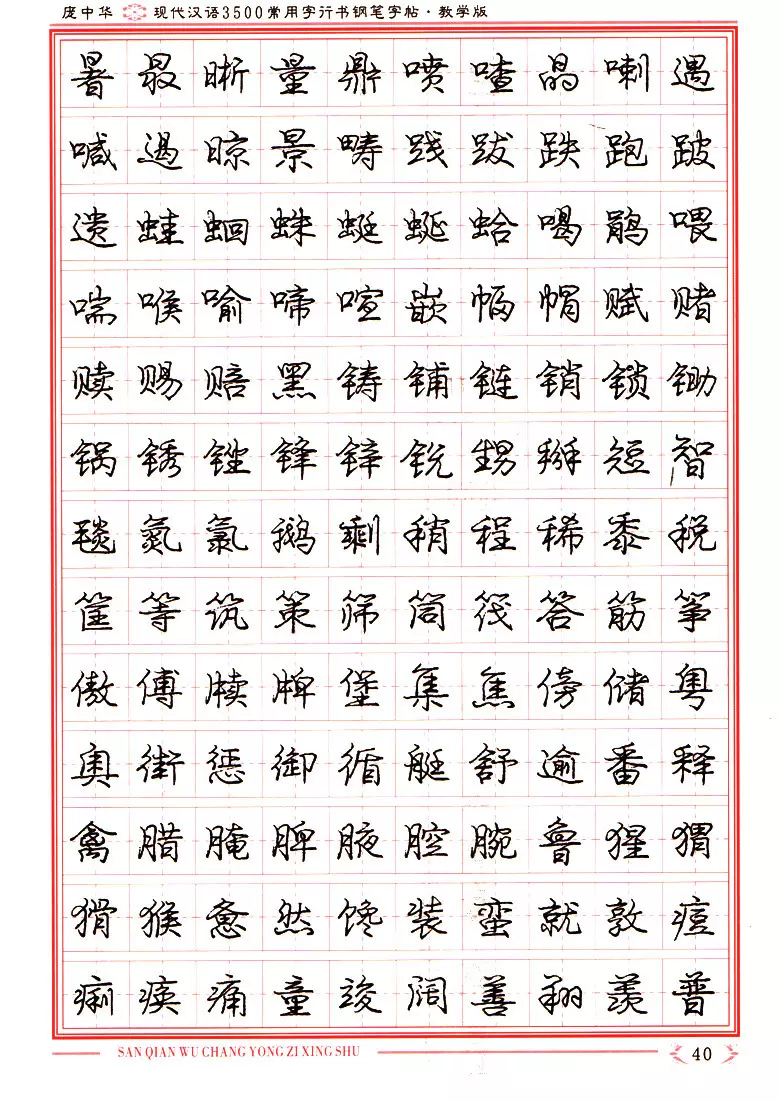 庞中华 现代汉语3500常用字行书钢笔字帖·教学版
暑最晰量鼎喷喳晶喇遇
喊遏晾景畴践跋跌跑跛
遗蛙蛔蛛蜓蜒蛤喝鹃喂
喘喉喻啼喧嵌幅帽赋赌
赎赐赔黑铸铺链销锁锄
锅锈锉锋锌锐甥掰短智
毯氮氯鹅剩稍程稀黍税
筐等筑策筛筒筏答筋筝
傲傅牍牌堡集焦傍储粤
奥街惩御循艇舒逾番释
禽腊腌脾腋腔腕鲁猩猬
猾猴惫然馋装蛮就敦痘
痢痪痛童竣阔善翔羡普
SAN QIAN WU CHANG YONG ZI XING SHU
40